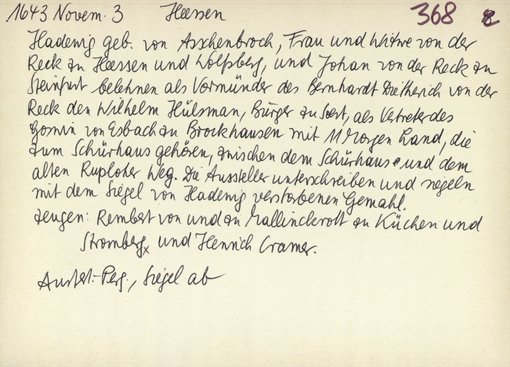 1643 Novem. 3 Heesen 368
Hadewig geb. von Asschenbroch, Frau und Witwe von der
Reck zu Heessen und Wolfsberg, und Johan von der Reck zu
Steinfurt belehnen als Vormünder des Bernhardt Dietherich von der
Reck den Wilhelm Hülsman, Bürger zu Soest, als Vertreter des
Goswin von Esbach zu Brockhausen mit 11 Morgen Land, die
zum Schürhaus gehören, zwischen dem Schürhaus und dem
alten Ruploher Weg. Die Aussteller unterschreiben und siegeln
mit dem Siegel von Hadewig verstorbenen Gemahl.
Zeugen: Rembert von und zu Mallinckrott zu Küchen und
Stromberg und Henrich Cramer.
Ausfert.-Perg., Siegel ab